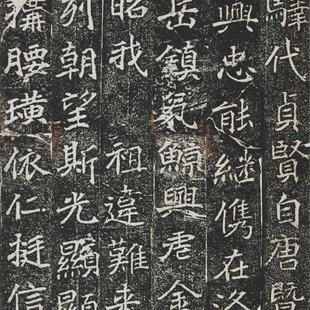 驛代貞賢自唐暨
興忠能繼儁在洛
岳鎮氣鯨興君金
昭我祖違難来
列朝望斯光顯顯
腰璜依仁挺信